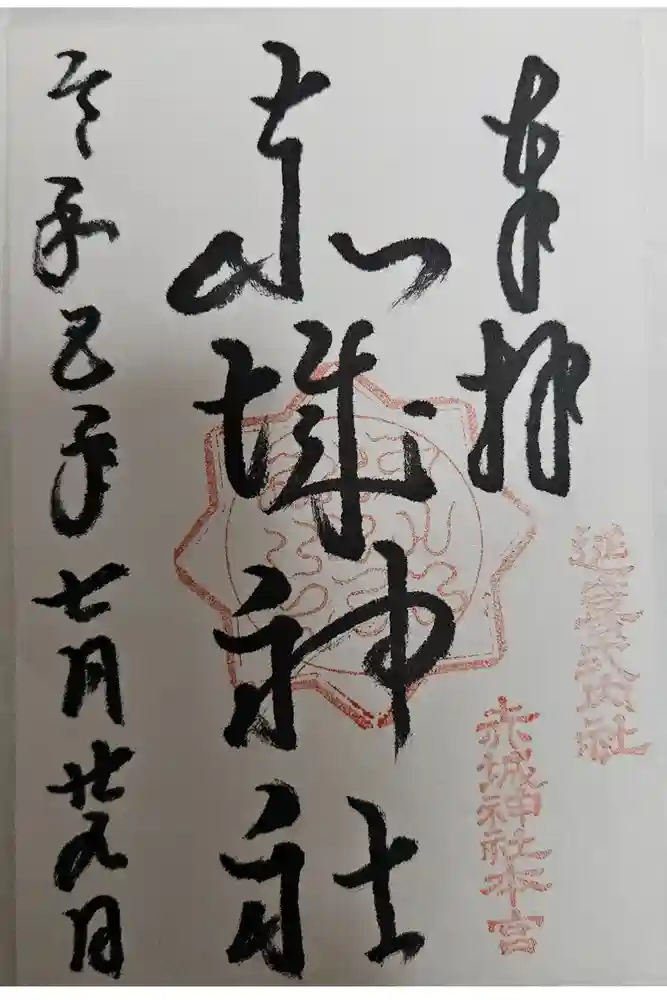 奉拝
延喜式内社
赤城神社本宮
赤城神社
令和五年七月廿九日